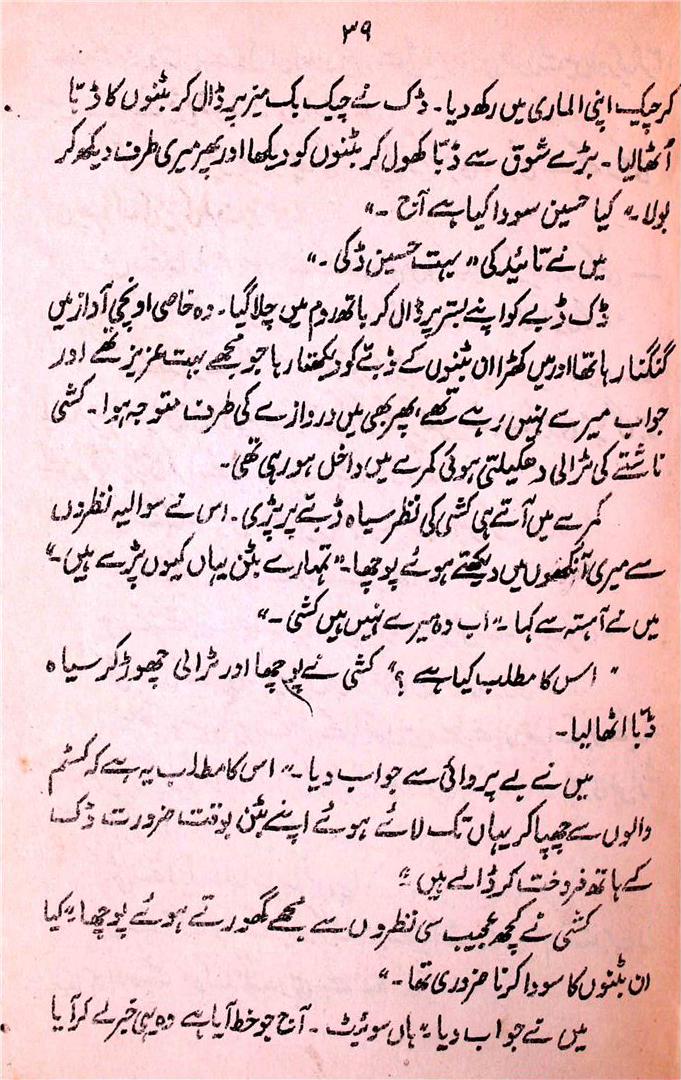 ۳۹
کر چیک اپنی الماری میں رکھ دیا۔ ڈک نے چیک بک میز پر ڈال کر بٹنوں کا ڈبّا
اُٹھا لیا۔ بڑے شوق سے ڈبّا کھول کر بٹنوں کو دیکھا اور پھر میری طرف دیکھ کر
بولا۔ " کیا حسین سودا کیا ہے آج ۔"
میں نے تائید کی " بہت حسین ڈکی ۔"
ڈک ڈبے کو اپنے بستر پر ڈال کر باتھ روم میں چلا گیا۔ وہ خاصی اونچی آواز میں
گنگنا رہا تھا اور میں کھڑا ان بٹنوں کے ڈبّے کو دیکھتا رہا جو مجھے بہت عزیز تھے اور
جو اب میرے نہیں رہے تھے، پھر بھی میں دروازے کی طرف متوجہ ہوا۔ کشی
ناشتے کی ٹرالی دھکیلتی ہوئی کمرے میں داخل ہو رہی تھی۔
کمرے میں آتے ہی کشی کی نظر سیاہ ڈبّے پر پڑی۔ اس نے سوالیہ نظروں
سے میری آنکھوں میں دیکھتے ہوئے پوچھا۔ " تمہارے بٹن یہاں کیوں پڑے ہیں۔"
میں نے آہستہ سے کہا۔ " اب وہ میرے نہیں ہیں کشی ۔"
" اس کا مطلب کیا ہے ؟" کشی نے پوچھا اور ٹرالی چھوڑ کر سیاہ
ڈبّا اٹھا لیا۔
میں نے بے پروائی سے جواب دیا۔ " اس کا مطلب یہ ہے کہ کسٹم
والوں سے چھپا کر یہاں تک لائے ہوئے اپنے بٹن بوقت ضرورت ڈک
کے ہاتھ فروخت کر ڈالے ہیں ۔"
کشی نے کچھ عجیب سی نظروں سے مجھے گھورتے ہوئے پوچھا " کیا
ان بٹنوں کا سودا کرنا ضروری تھا۔"
میں نے جواب دیا۔ " ہاں سوئیٹ ۔ آج جو خط آیا ہے وہ یہی خبر لے کر آیا